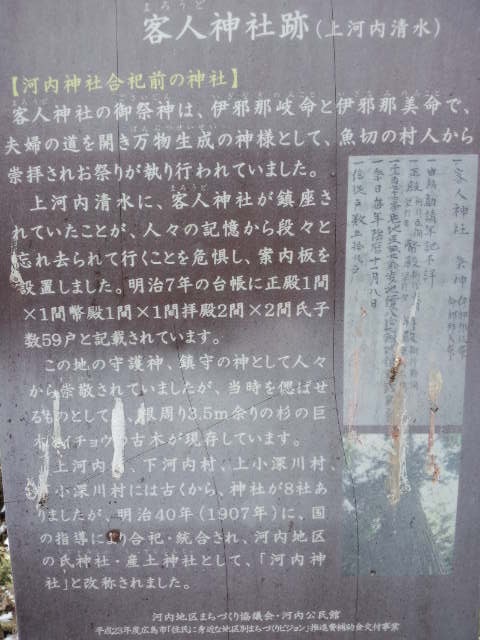 まろうど
客人神社跡(上河内清水)
【河内神社合祀前の神社】
客人神社の御祭神は、伊邪那岐命と伊邪那美命で、
夫婦の道を開き万物生成の神様として、魚切の村人から
崇拝されお祭りが執り行われていました。
上河内清水に、客人神社が鎮座さ
れていたことが、人々の記憶から段々と
忘れ去られて行くことを危惧し、案内板を
設置しました。明治7年の台帳に正殿1間
×1間幣殿1間×1間拝殿2間×2間氏子
数59戸と記載されています。
この地の守護神、鎮守の神として人々
から崇敬されていましたが、当時を偲ばせ
るものとして、根周り3.5m余りの杉の巨
木とイチョウの古木が現存しています。
上河内村、下河内村、上小深川村、
小深川村には古くから、神社が8社あ
りましたが、明治40年(1907年)に、国
の指導により合祀・統合され、河内地区
の氏神社・産土神社として、「河内神
社」と改称されました。
河内地区まちづくり協議会・河内公民館
平成23年度広島市「住民に身近な地区別まちづくりビジョン」推進費補助金交付事業
一客人神社